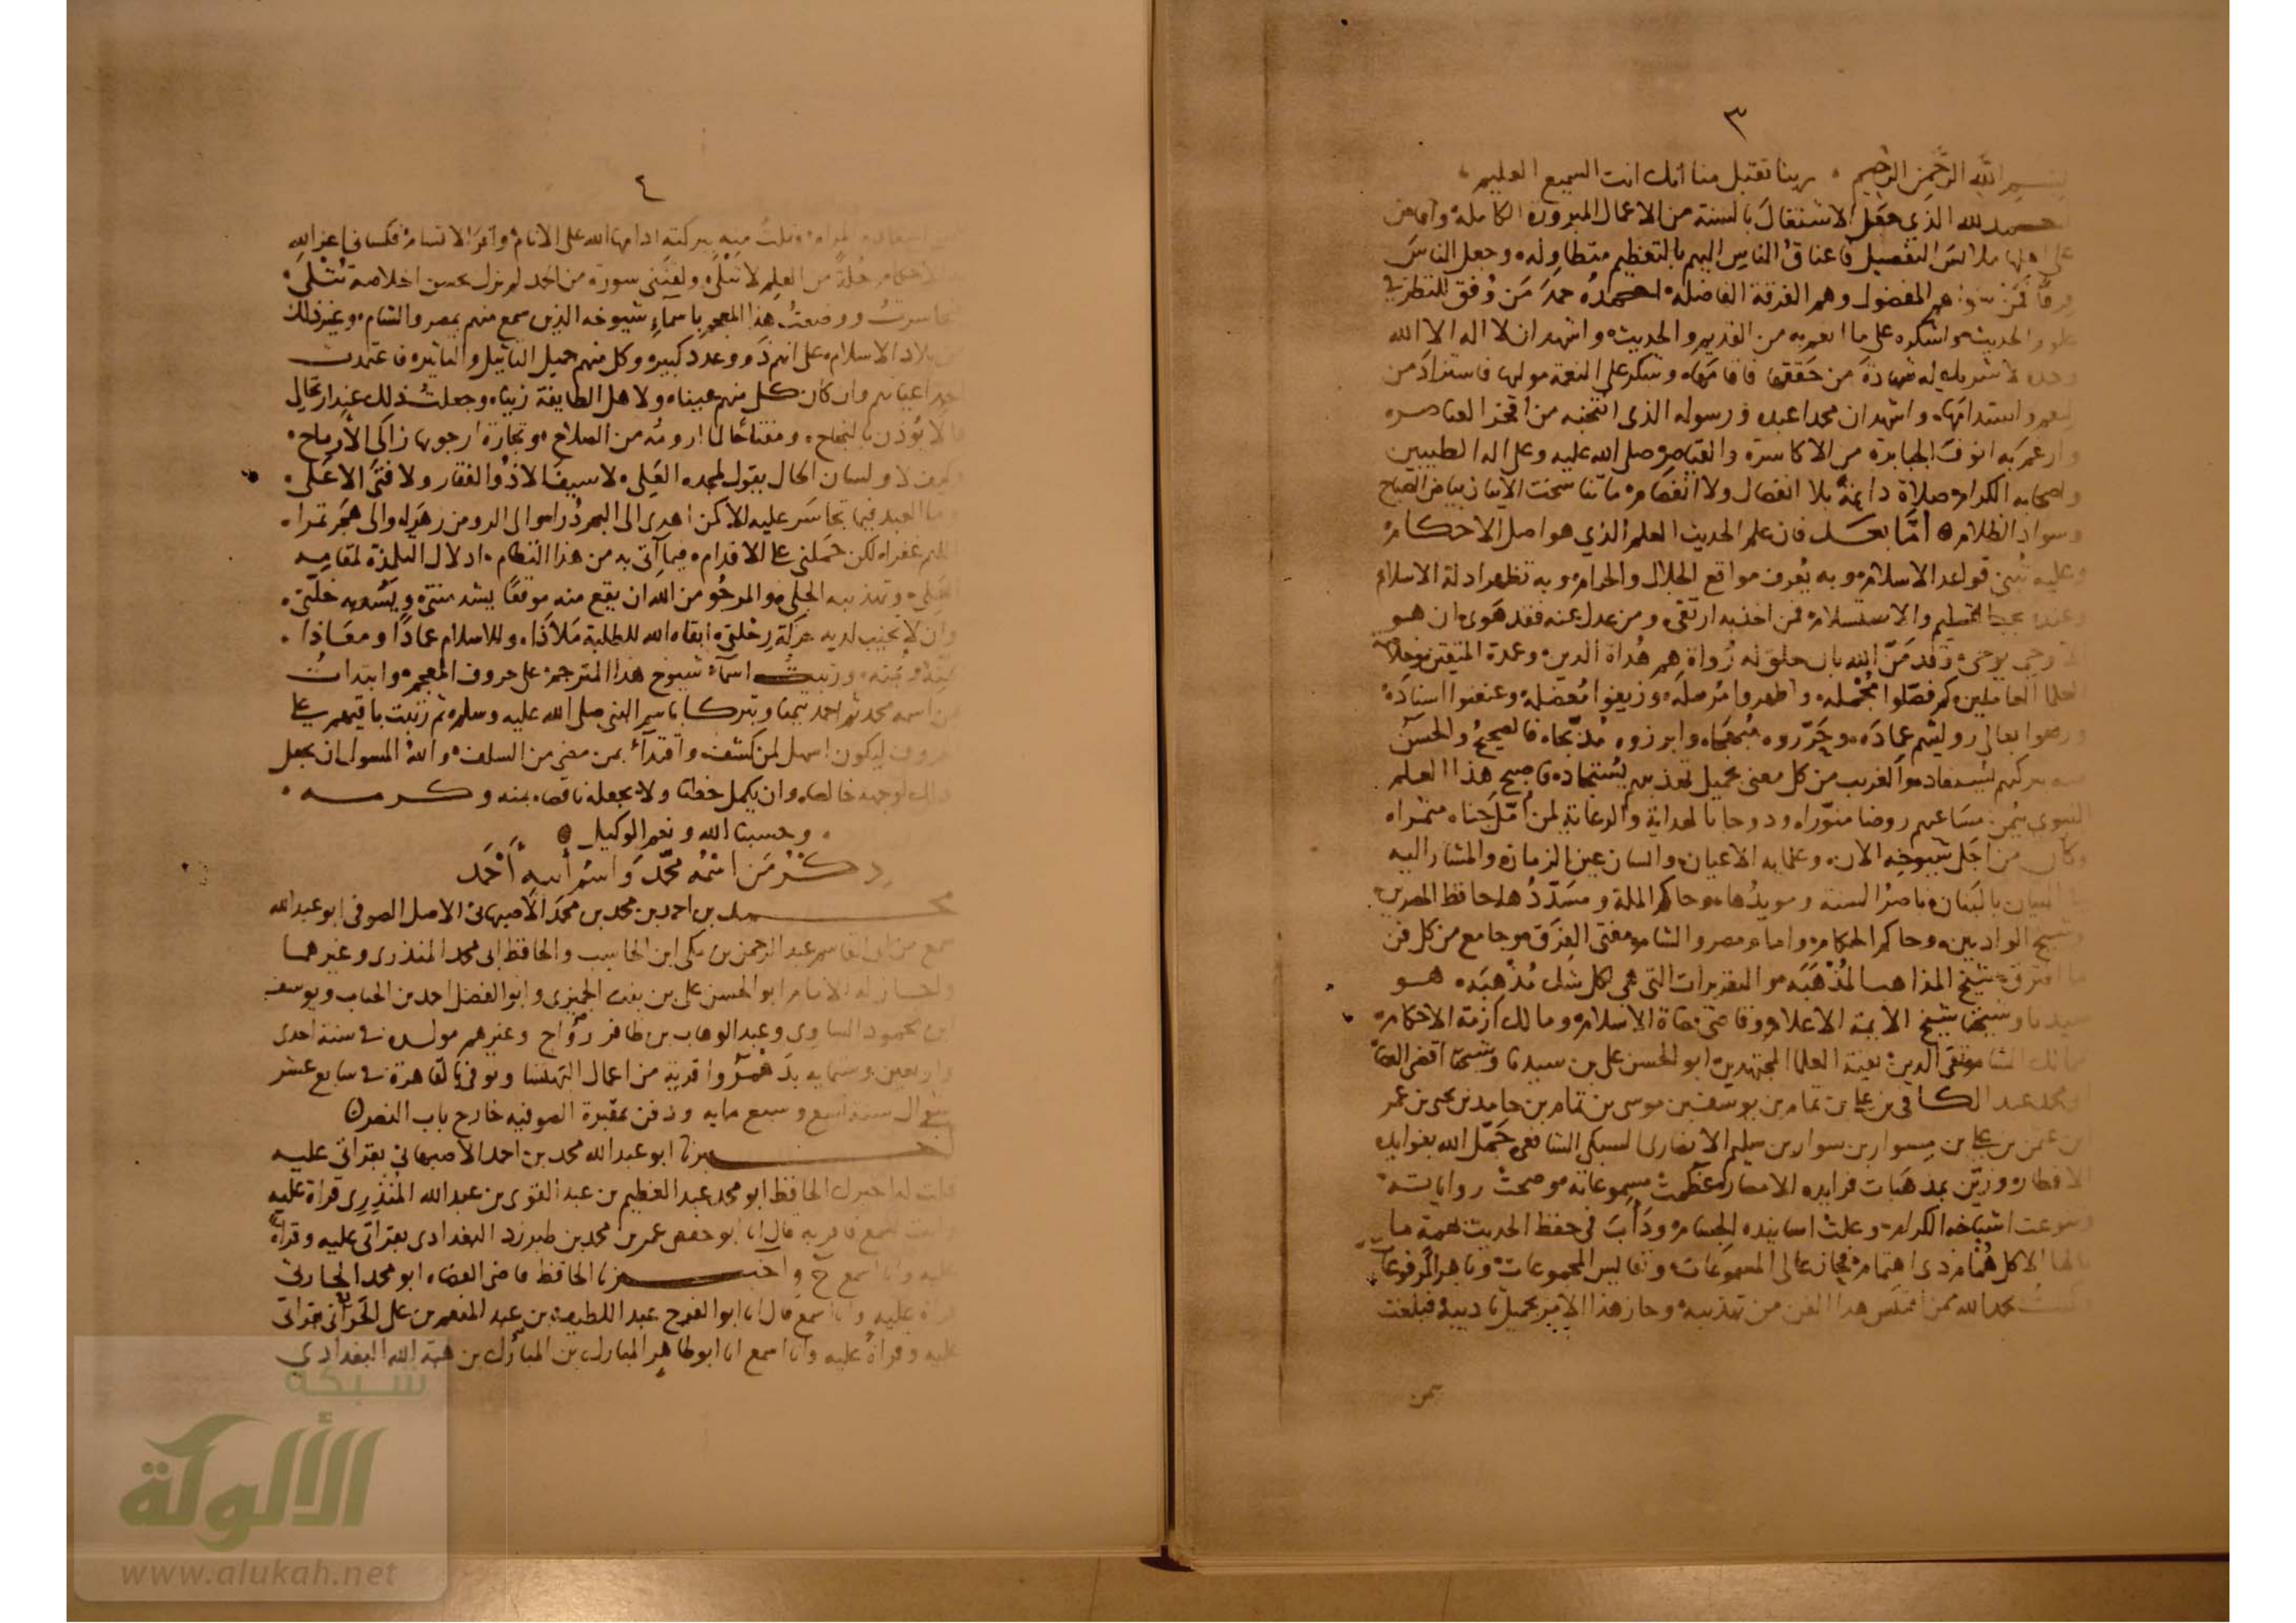 ٣
بسم الله الرحمن الرحيم ، ربنا تقبل منا انك انت السميع العليم ،
الحمد لله الذي جعل الاشتغال بالسنة من الاعمال المبرورة الكاملة وافاض
على اهلها ملابس التفضيل فاعناق الناس اليهم بالتعظيم متطاولة وجعل الناس
فرقا فمن هم المفضول وهم الفرقة الفاضلة احمده حمد من وفق للنظر في
علوم الحديث واشكره على ما انعم به من القديم والحديث واشهد ان لا اله الا الله
وحده لا شريك له شهادة من حققها فاقامها وشكر على النعمة موليها فاستزاد من
النعم واستدامها واشهد ان محمدا عبده ورسوله الذي انتخبه من افخر العناصر
وارغم به انوف الجبابرة من الاكاسرة والقياصر صلى الله عليه وعلى اله الطيبين
واصحابه الكرام صلاة دائمة بلا انفصال ولا انفصام ما تناسخت الازمان بياض الصباح
وسواد الظلام اما بعد فان علم الحديث العلم الذي هو اصل الاحكام
وعليه تبنى قواعد الاسلام وبه يعرف مواقع الحلال والحرام وبه تظهر ادلة الاسلام
وعنده يجب التسليم والاستسلام فمن اخذ به ارتقى ومن عدل عنه فقد هوى ان هو
الا وحي يوحى وقد من الله بان خلق له رواة هم هداة الدين وعمدة المتقين
العلما العاملين كم فصلوا مجمله واظهروا مرسله وزيفوا معضله وعنعنوا اسناده
ورفعوا بعالي روايتهم عماده وحرروه وابرزوه فالصحيح والحسن
ببركتهم يستفاد والغريب من كل معنى بجميل تهذيبهم يستجاد فاصبح هذا العلم
النبوي بيمن مساعيهم روضا منورا ودوحا بالهداية والرعاية لمن امل جناه مثمرا
وكان من اجل شيوخه الان وعلمايه الاعيان وانسان عين الزمان والمشار اليه
في البيان بالبنان ناصر السنة ومويدها وحاكم الملة ومسددها حافظ المصرين
وشيخ الواديين وحاكم الحكام وامام مصر والشام مفتي الفرق وجامع من كل فن
ما افترق شيخ المذاهب المذهبة والتقريرات التي هي لكل شك مذهبة هو
سيدنا وشيخنا شيخ الايمة الاعلام وقاضي قضاة الاسلام ومالك ازمة الاحكام
تقي الدين بقية العلما المجتهدين ابو الحسن علي بن سيدنا وشيخنا اقضى القضاة
ابو محمد عبد الكافي بن علي بن تمام بن يوسف بن موسى بن تمام بن حامد بن يحيى بن عمر
ابن عثمن بن علي بن مسوار بن سوار بن سليم الانصاري السبكي الشافعي جمل الله بفوايده
الاقطار وزين بمذهبات فرايده الامصار عظمت مسموعاته وصحت رواياته
وتنوعت اشياخه الكرام وعلت اسانيده الجسام وداب في حفظ الحديث بهمة ما
نالها الا كل همام ذي اهتمام فحاز عالي المسموعات ونفايس المجموعات وباهر المرفوعات
وكنت بحمد الله ممن اقتبس هذا الفن من تهذيبه وحاز هذا الامر بجميل تاديبه فبلغت
من
٤
من المراد ونلت منه ببركته ادامها الله على الانام واقر الاقسام فكساني اعز الله
به الاحكام حلة من العلم لا تبلى ولقنني سورة من الحمد لم تزل بحسن اخلاصه تتلى
فتجاسرت ووضعت هذا المعجم باسماء شيوخه الذين سمع منهم بمصر والشام وغير ذلك
من بلاد الاسلام على انهم ذوو عدد كبير وكل منهم جميل التاثيل والتاثير فاعتمدت
اعيانهم وان كان كل منهم عينا ولاهل الطايفة زينا وجعلت ذلك عند ارتحالي
فالا يؤذن بالنجاح ومفتاحا لما ارومه من الصلاح وتجارة ارجو بها زاكي الارباح
وكيف لا ولسان الحال يقول لمجده العلي لا سيف الا ذو الفقار ولا فتى الا علي
وما العبد فيما تجاسر عليه الا كمن اهدى الى البحر درا والى الروض زهرا والى هجر تمرا
اللهم غفرا لكن حملني على الاقدام فيما آتي به من هذا النظام ادلال التلمذة لمقامه
العلي وتهذيبه الجلي والمرجو من الله ان يقع منه موقعا يشد منتي ويسد به خلتي
وان لا تخيب لديه حركة رحلتي ابقاه الله للطلبة ملاذا وللاسلام عمادا ومعاذا
بمنه ورتبت اسماء شيوخ هذا المترجمة على حروف المعجم وابتدات
بمن اسمه محمد ثم احمد تيمنا وتبركا باسم النبي صلى الله عليه وسلم ثم رتبت باقيهم على
الحروف ليكون اسهل لمن كشف واقتداء بمن مضى من السلف والله المسول ان يجعل
ذلك لوجهه خالصا وان يكمل خطانا ولا يجعله ناقصا بمنه وكرمه
وحسبنا الله ونعم الوكيل
ذكر من اسمه محمد واسم ابيه احمد
محمد بن احمد بن محمد بن محمد الاصبهاني الاصل الصوفي ابو عبد الله
سمع من ابي القاسم عبد الرحمن بن مكي ابن الحاسب والحافظ ابي محمد المنذري وغيرهما
واجاز له الامام ابو الحسن علي بن بنت الجميزي وابو الفضل احمد بن الحباب ويوسف
ابن محمود الساوي وعبد الوهاب بن ظافر رواج وغيرهم مولده في سنة احدى
واربعين وستمايه بدهمروا قرية من اعمال البهنسا وتوفي بالقاهرة في سابع عشر
شوال سنة تسع وسبع مايه ودفن بمقبرة الصوفيه خارج باب النصر
اخبرنا ابو عبد الله محمد بن احمد الاصبهاني بقراتي عليه
قلت له اخبرك الحافظ ابو محمد عبد العظيم بن عبد القوي بن عبد الله المنذري قراة عليه
وانت تسمع فاقر به قال انا ابو حفص عمر بن محمد بن طبرزد البغدادي بقراتي عليه وقراة
عليه وانا اسمع ح واخبرنا الحافظ قاضي القضاه ابو محمد الحارثي
قراة عليه وانا اسمع قال انا ابو الفرج عبد اللطيف بن عبد المنعم بن علي الحراني بقراتي
عليه وقراة عليه وانا اسمع انا ابو طاهر المبارك بن المبارك بن هبة الله البغدادي
شبكة
الألوكة
www.alukah.net